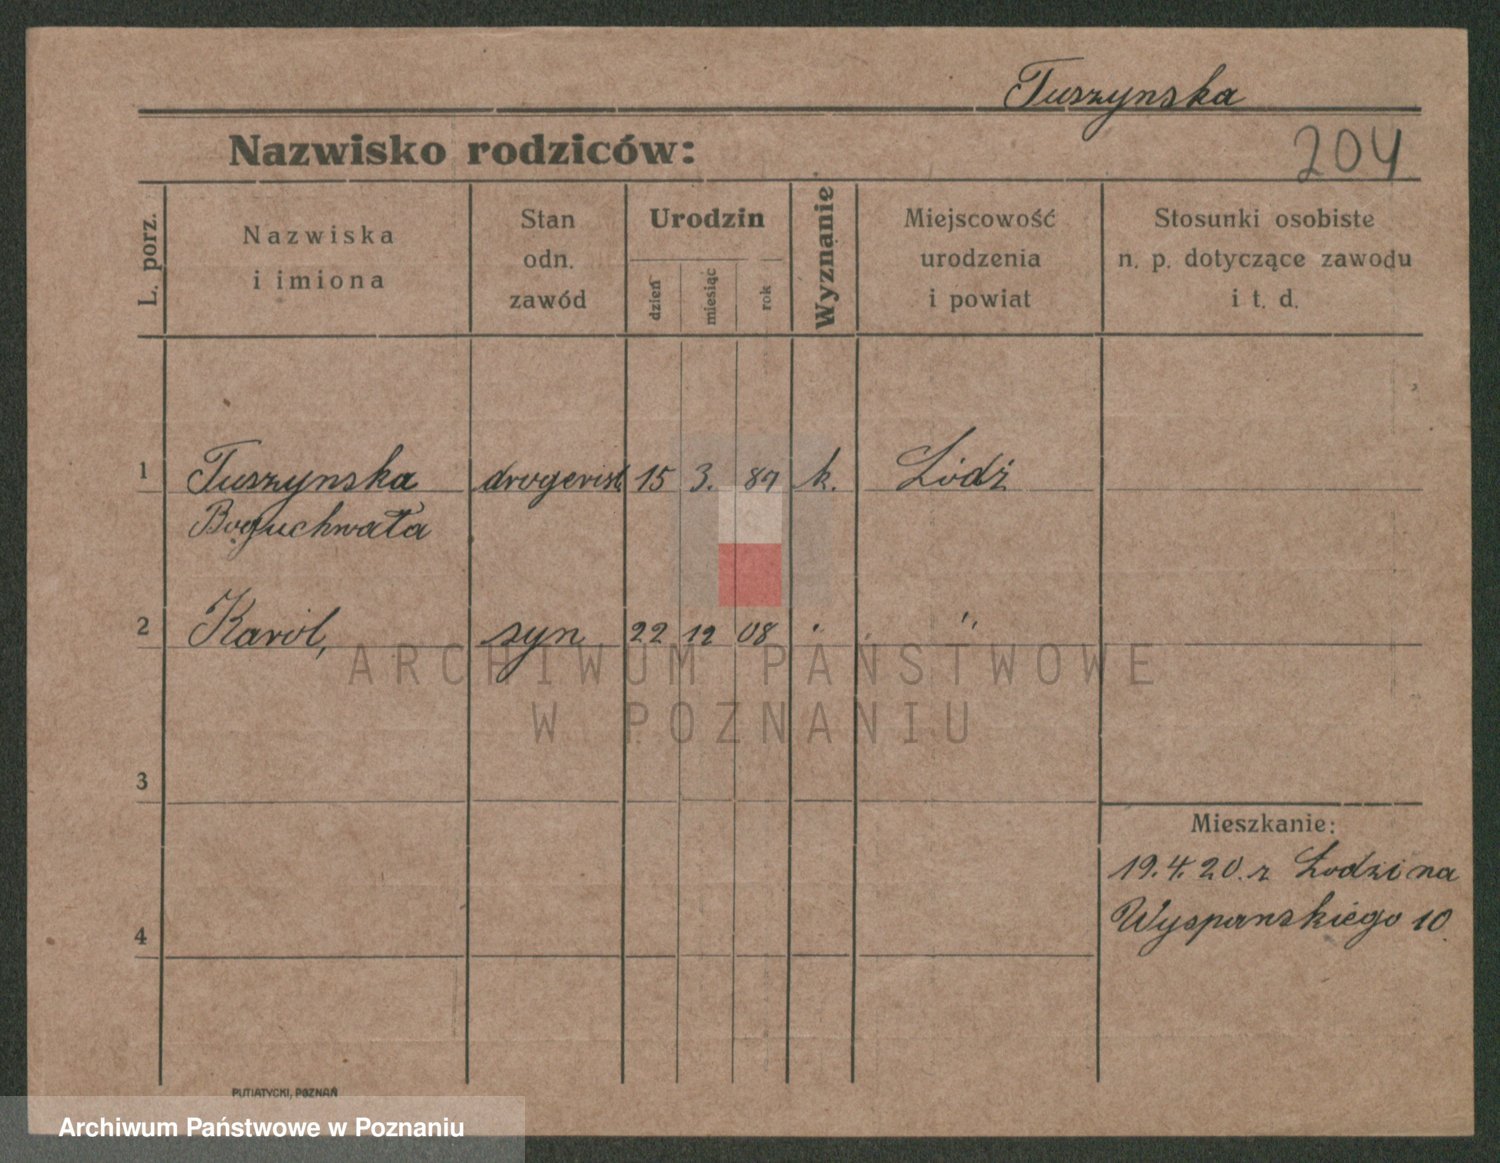 Tuszynska
Nazwisko rodziców:
204
L. porz.
Nazwiska
i imiona
Stan
odn.
zawód
Urodzin
dzień
miesiąc
rok
Wyznanie
Miejscowość
urodzenia
i powiat
Stosunki osobiste
n. p. dotyczące zawodu
i t. d.
1 Tuszynska drogerist 15 3. 87 k. Łódź
Boguchwała
2 Karol, syn 22 12 08 " "
ARCHIWUM PAŃSTWOWE
W POZNANIU
3
Mieszkanie:
19.4.20. z Łodzi na
Wyspanskiego 10.
4
PUTIATYCKI, POZNAŃ
Archiwum Państwowe w Poznaniu